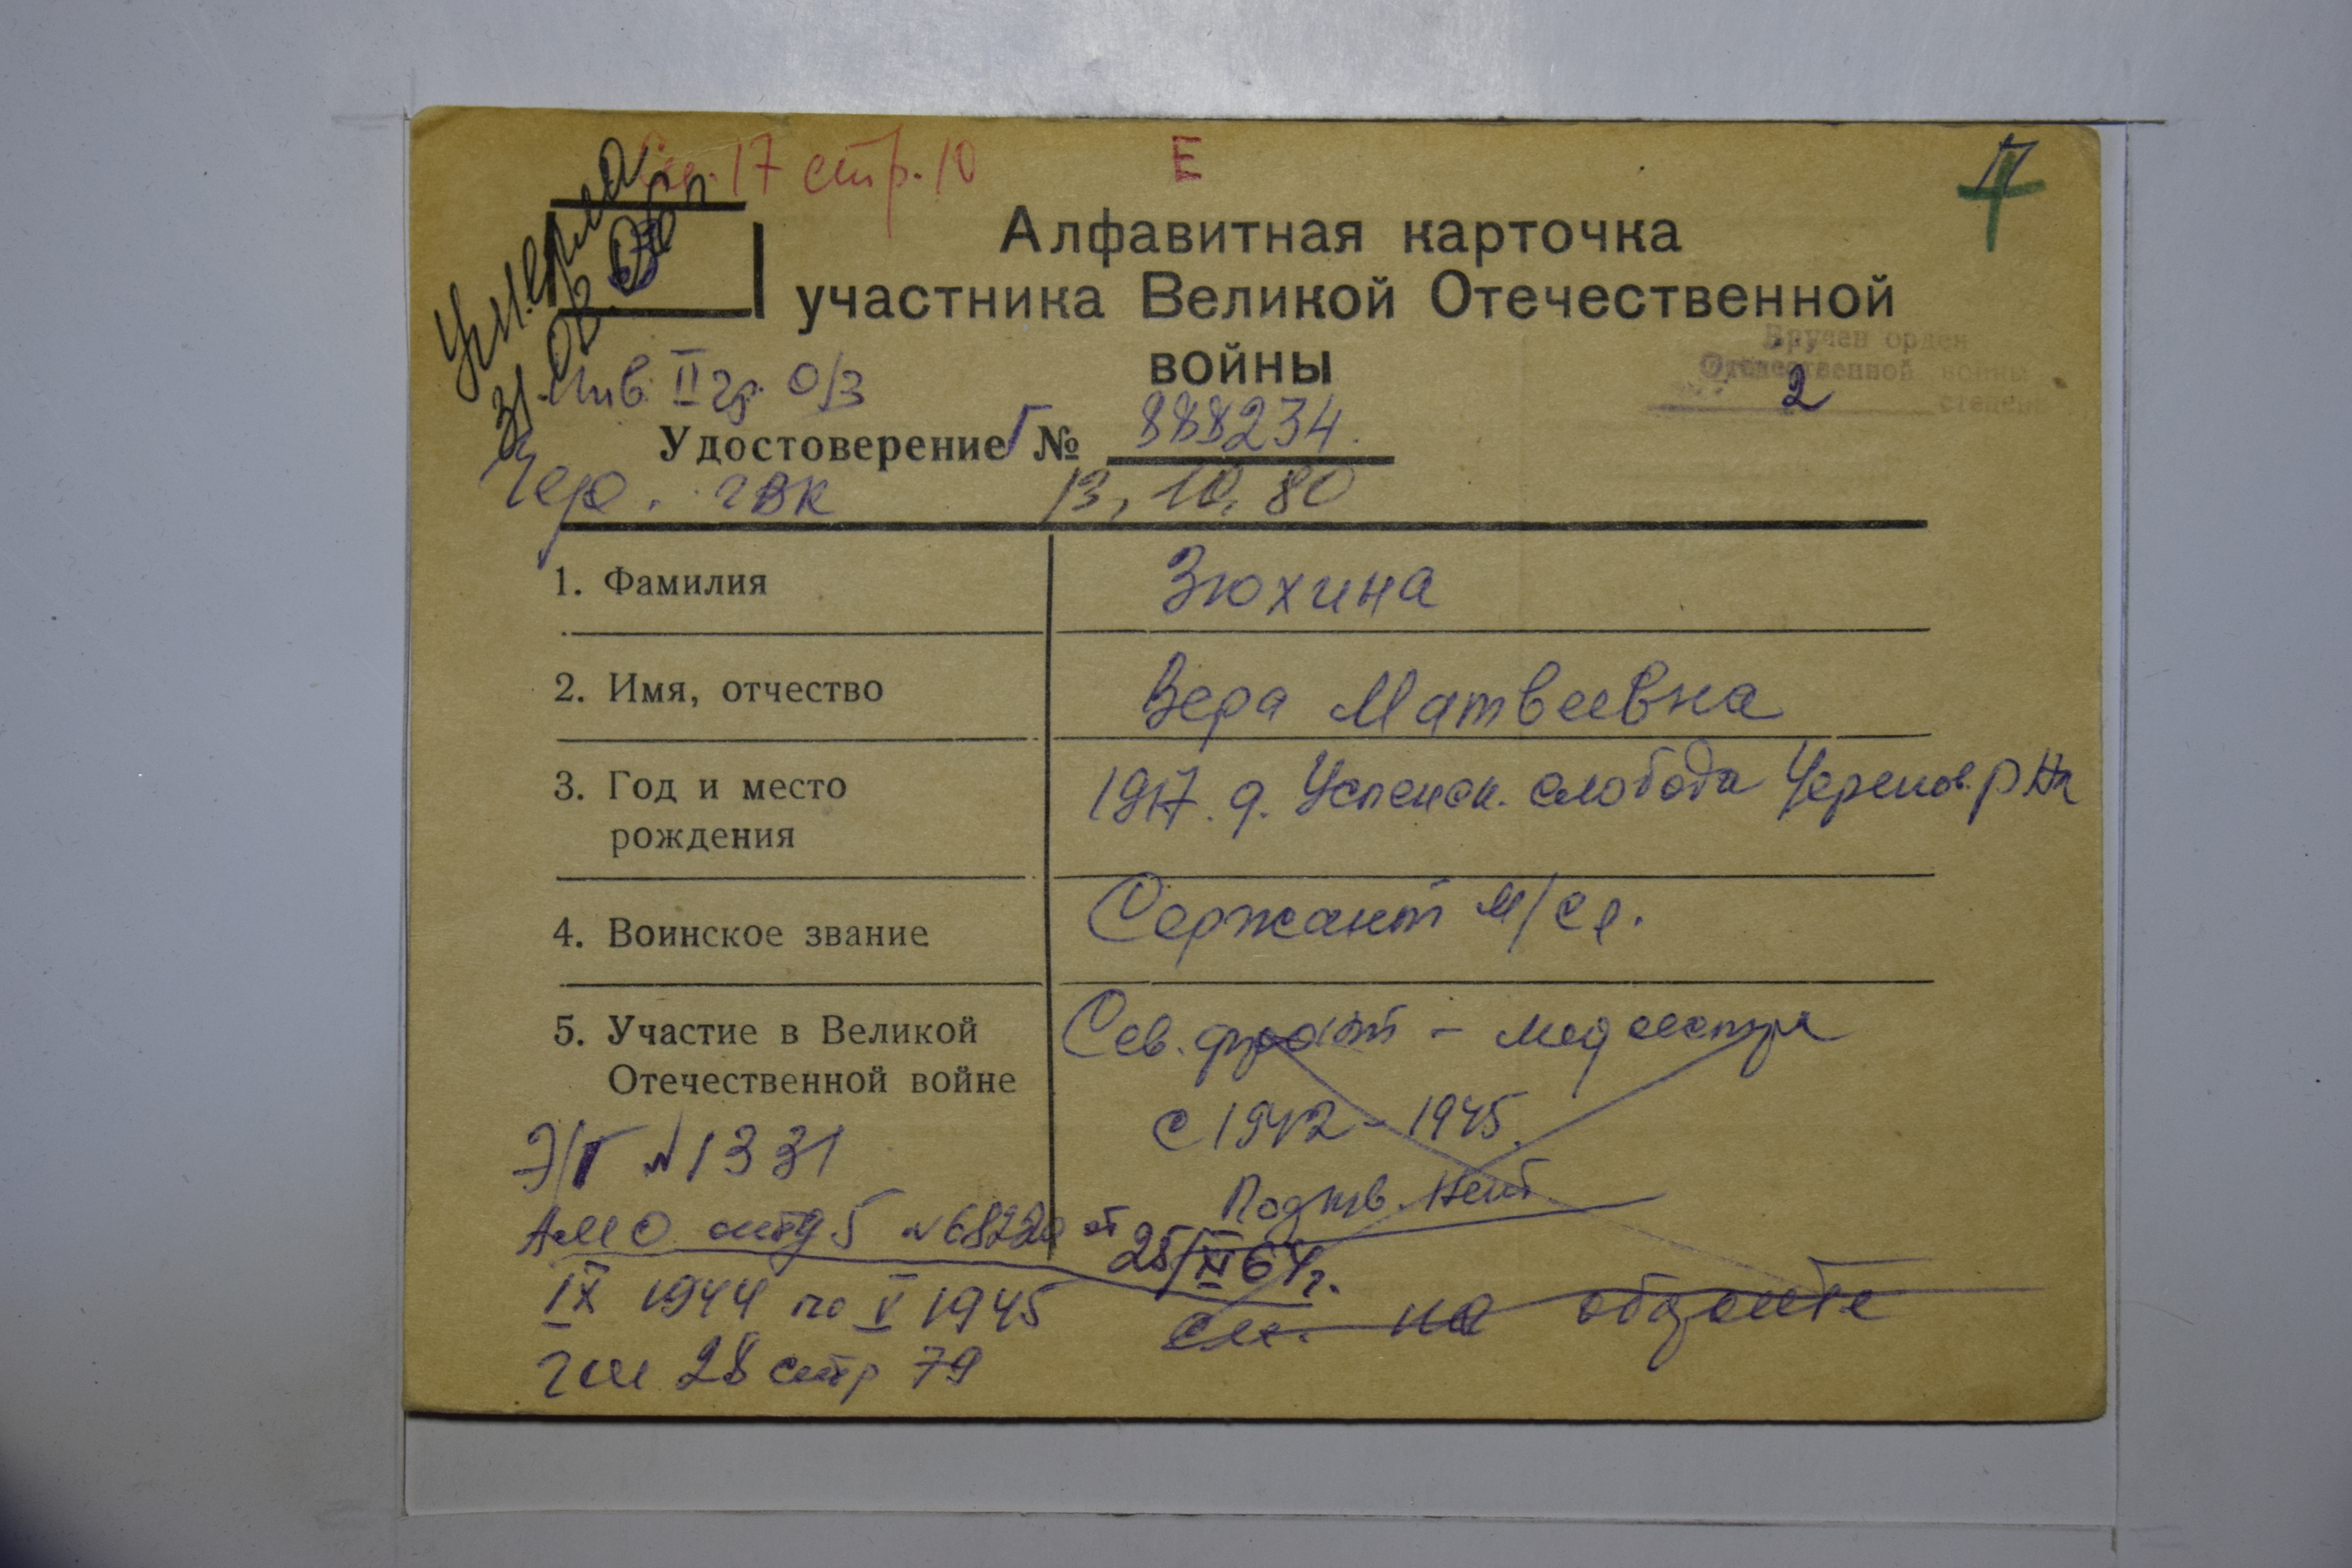 стр. 10
Е
П
Умерла
Алфавитная карточка
участника Великой Отечественной
войны
Вручен орден
Отечественной войны
2 степени
Инв. II гр. О/З
Удостоверение Г № 888234.
Чер. ГВК 13.10.80
1. Фамилия Зюхина
2. Имя, отчество Вера Матвеевна
3. Год и место рождения 1917. д. Успенск. слобода Черепов. р-на
4. Воинское звание Сержант м/сл.
5. Участие в Великой Отечественной войне Сев. фронт - медсестра
с 1942 - 1945.
Подтв. нет
см. на обороте
Э/Г № 1331
АМО отд 5 № 68220 от 25/XI 64 г.
IX 1944 по V 1945
28 стр 79